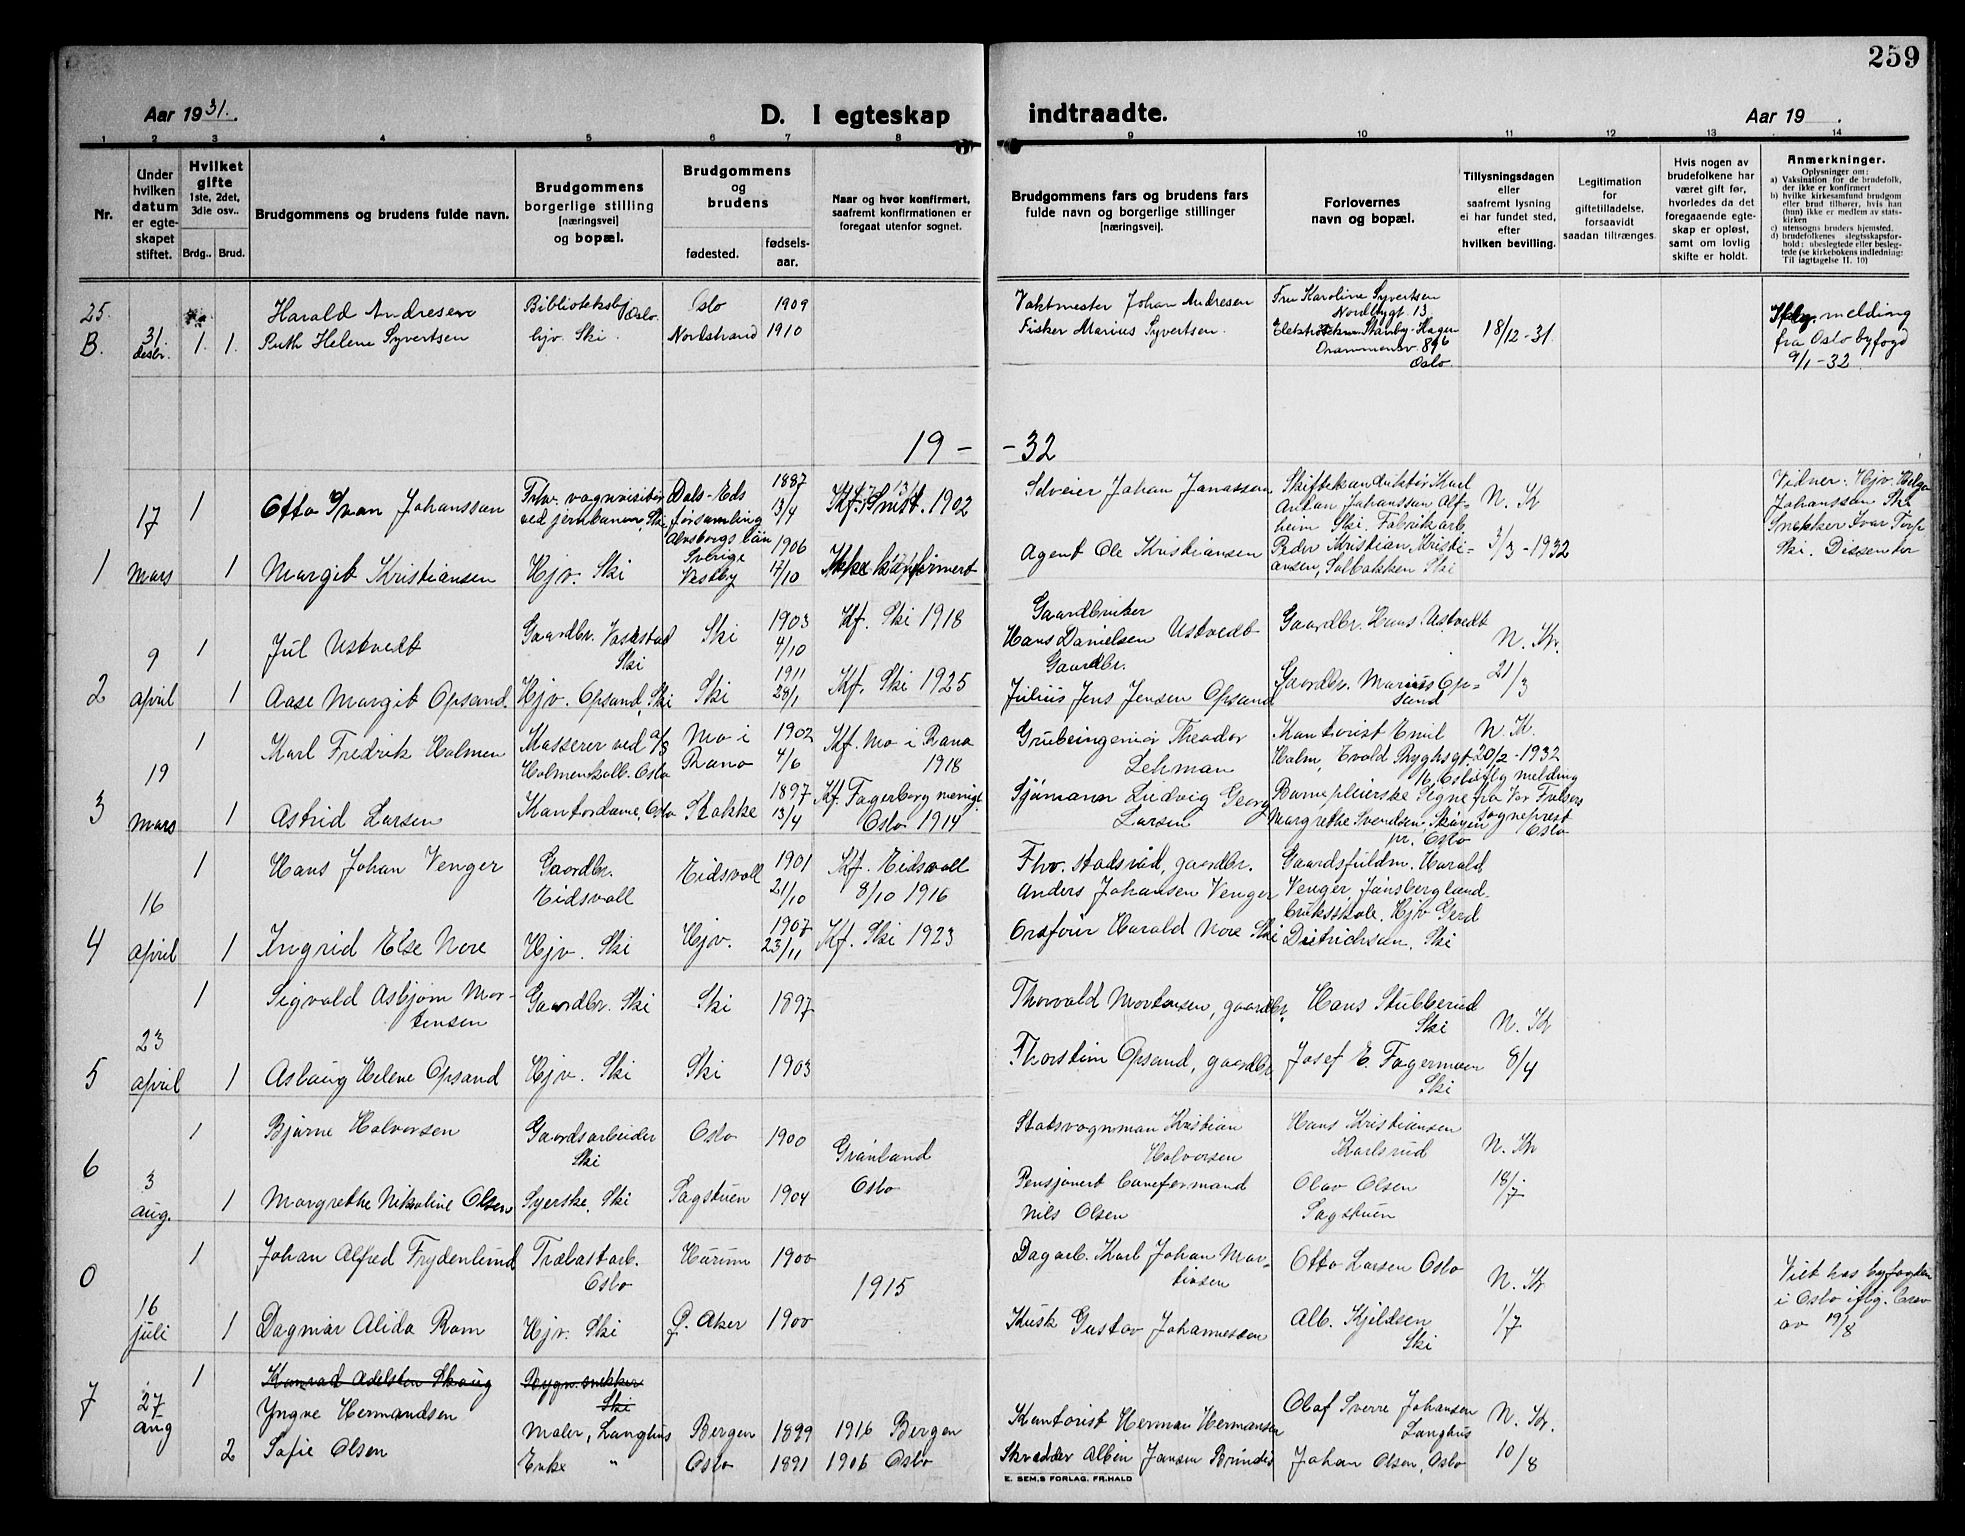 259
Aar 1931.
D. I egteskap
indtraadte.
Aar 19 .
1 2 3 4 5 6 7 8 9 10 11 12 13 14
Nr.
Under
hvilken
datum
er egte-
skapet
stiftet.
Hvilket
gifte
1ste, 2det,
3die osv..
Brdg.. Brud.
Brudgommens og brudens fulde navn.
Brudgommens
borgerlige stilling
[næringsvei]
og bopæl.
Brudgommens
og
brudens
fødested.
fødsels-
aar.
Naar og hvor konfirmert,
saafremt konfirmationen er
foregaat utenfor sognet.
Brudgommens fars og brudens fars
fulde navn og borgerlige stillinger
[næringsvei].
Forlovernes
navn og bopæl.
Tillysningsdagen
eller
saafremt lysning
ei har fundet sted,
efter
hvilken bevilling.
Legitimation
for
giftetilladelse,
forsaavidt
saadan tiltrænges.
Hvis nogen av
brudefolkene har
været gift før,
hvorledes da det
foregaaende egte-
skap er opløst,
samt om lovlig
skifte er holdt.
Anmerkninger.
Oplysninger om:
a) Vaksination for de brudefolk,
der ikke er konfirmert
b) hvilke kirkesamfund brudgom
eller brud tilhører, hvis han
(hun) ikke er medlem av stats-
kirken
c) utensogns bruders hjemsted.
d) brudefolkenes slegtsskapsfor-
hold: ubeslegtede eller besleg-
tede (se kirkebokens indledning:
Til iagttagelse II. 10)
25. Harald Andresen Oslo. Oslo 1909 Vaktmester Johan Andresen Fru Karoline Syvertsen
Nordbygt 13
B. 31 desbr. 1. 1. Ruth Helene Syvertsen hjv. Ski. Nordstrand 1910 Fisker Marius Syvertsen. 18/12-31.
Drammensv. 896
Oslo.
melding
fra Oslo byfogd
9/1-32
19 - - 32
1 Otto Johansson ved jernbanen, Ski Dals-Eds
Sverige 1887 13/4 1902 Johan N. K
17 mars 1 Margit Kristiansen Hjv. Ski Vestby 1906 17/10 Ikke konfirmert Agent Ole Kristiansen Peder Kristian Kristi-
ansen, Solbakken Ski 3/3-1932
Vidner: Hjv. Helga
Johansson Ski
Snekker Ivar Torp
Ski. Dissenter
9 1 Jul Ustvedt Gaardbr. Veststad
Ski Ski 1903 4/10 Kf. Ski 1918 Gaardbruker
Hans Danielsen Ustvedt Gaardbr. Hans Ustvedt N. Kr.
2 april 1 Aase Margit Opsand. Hjv. Opsand, Ski Ski 1911 28/1 Kf. Ski 1925 Gaardbr.
Julius Jens Jensen Opsand Gaardbr. Marius Op-
sand 21/3
19 1 Karl Fredrik Holmen Kasserer ved A/S
Holmenkolb. Oslo Mo i
Rana 1902 4/6 Kf. Mo i Rana
1918 Grubeingeniør Theodor
Lehman Kontorist Emil
Holm, Evald Ryghsgt.
16, Oslo N. K.
20/2-1932
3 mars 1 Astrid Larsen Kontordame, Oslo Stokke 1897 13/4 Kf. Fagerborg menigh.
Oslo 1914 Sjømann Ludvig Georg
Larsen Barnepleierske Signe
Margrethe Svendsen, Skøyen
pr. Oslo iflg melding
fra Vor Frelsers
sogneprest
Oslo
16 1 Hans Johan Venger Gaardbr.
Eidsvoll Eidsvoll 1901 21/10 Kf. Eidsvoll
8/10 1916 Fhv. stadsråd, gaardbr.
Anders Johansen Venger Gaardsfuldm. Harald
Venger, Jønsberg land-
bruksskole. Hjv Gerd
4 april 1 Ingrid Else Nore Hjv. Ski Hjv. 1907 23/11 Kf. Ski 1923 Harald Nore Ski Dietrichson. Ski
23 1 Sigvald Asbjørn Mor-
tensen Gaardbr. Ski Ski 1897 Thorvald Mortensen, gaardbr. Hans Stubberud
Ski N. K
5 april 1 Aslaug Helene Opsand Hjv. Ski Ski 1903 Thorstein Opsand, gaardbr Josef E. Fagermoen
Ski 8/4
6 1 Bjarne Halvorsen Gaardsarbeider
Ski Oslo 1900 Grønland
Oslo Kristian
Halvorsen Hans Kristiansen
Karlsrud N. Kr
3 aug. 1 Margrethe Nikoline Olsen Syerske, Ski Sagstuen 1904 Pensjonert baneformand
Nils Olsen Olav Olsen
Sagstuen 18/7
0 1 Johan Alfred Frydenlund Trælastarb.
Oslo Hurum 1900 1915 Dagarb. Karl Johan Mar-
tinsen Otto Larsen Oslo N. Kr
16 juli 1 Dagmar Alida Ram Hjv. Ski Ø. Aker 1900 Kusk Gustav Johannessen Alb. Kjeldsen
Ski 1/7
Viet hos byfogden
i Oslo iflg. brev
av 19/8
7 27 aug 1 Konrad Adelsten Skaug Bygn. snekker
Ski
Yngve Hermandsen Maler, Langhus Bergen 1899 1916 Bergen Kontorist Herman Hermansen Olaf Sverre Johansen
Langhus N. Kr.
2 Sofie Olsen Enke " Oslo 1891 1906 Oslo Skredder Albin Jansen Johan Olsen, Oslo 10/8
E. SEM.S FORLAG. FR.HALD